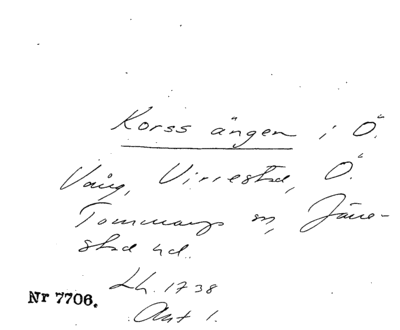 Korss ängen i Ö.
Vång, Virrestad, Ö.
Tommarps sn, Järre-
stad hd.
Lh. 1738
Akt 1.
Nr 7706.